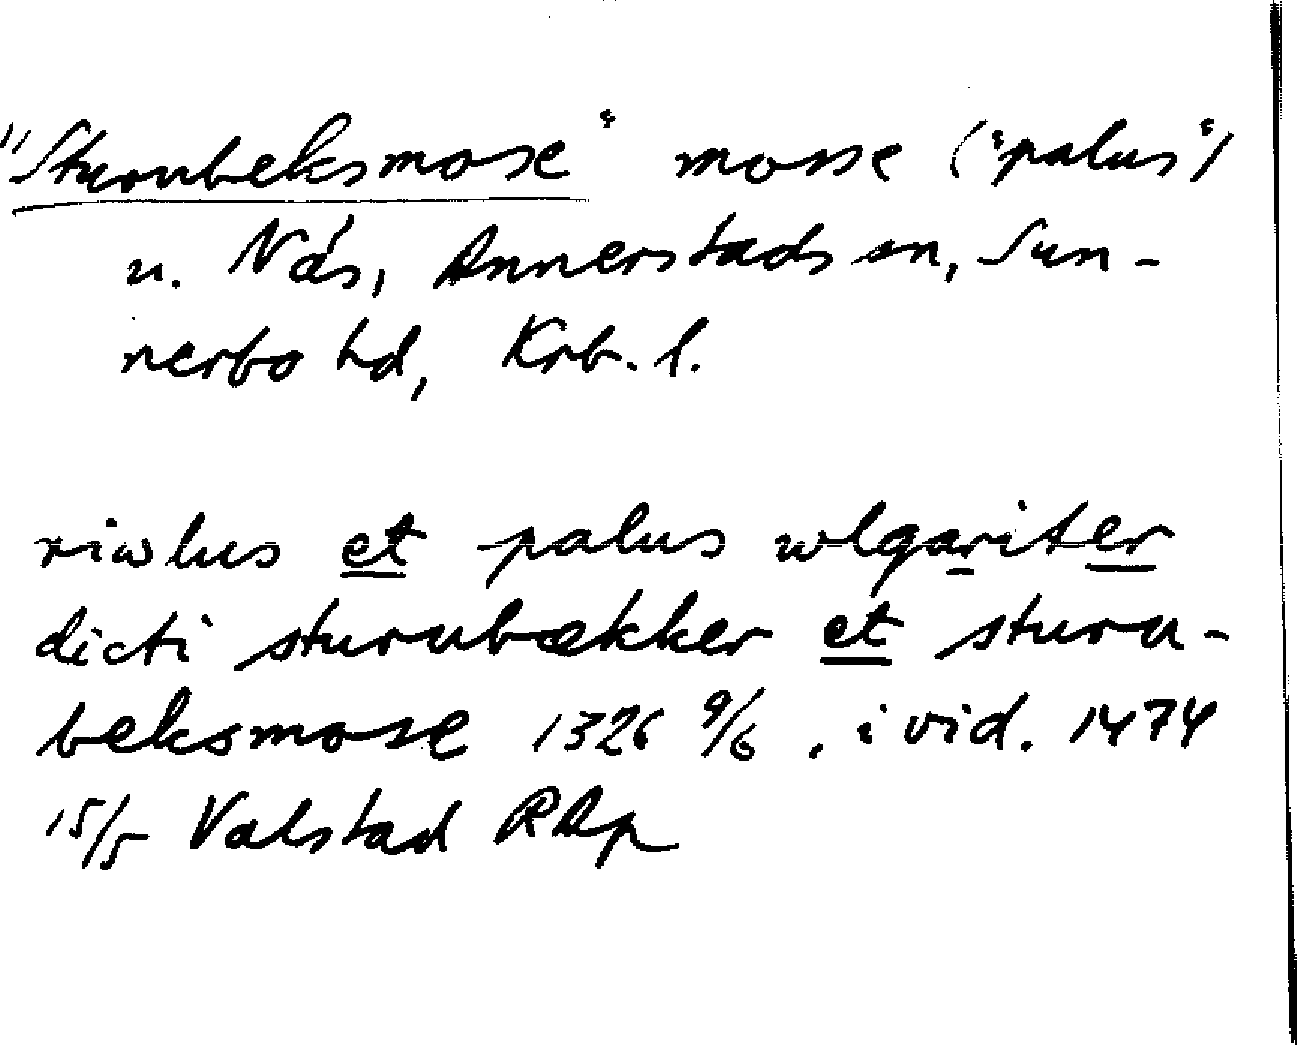 "Sturubeksmose" mosse ("palus")
u. Näs, Annerstads sn, Sun-
nerbo hd, Krb. l.
riwlus et palus wlgariter
dicti sturubækker et sturu-
beksmose 1326 9/6. i vid. 1474
15/5 Valstad RAp